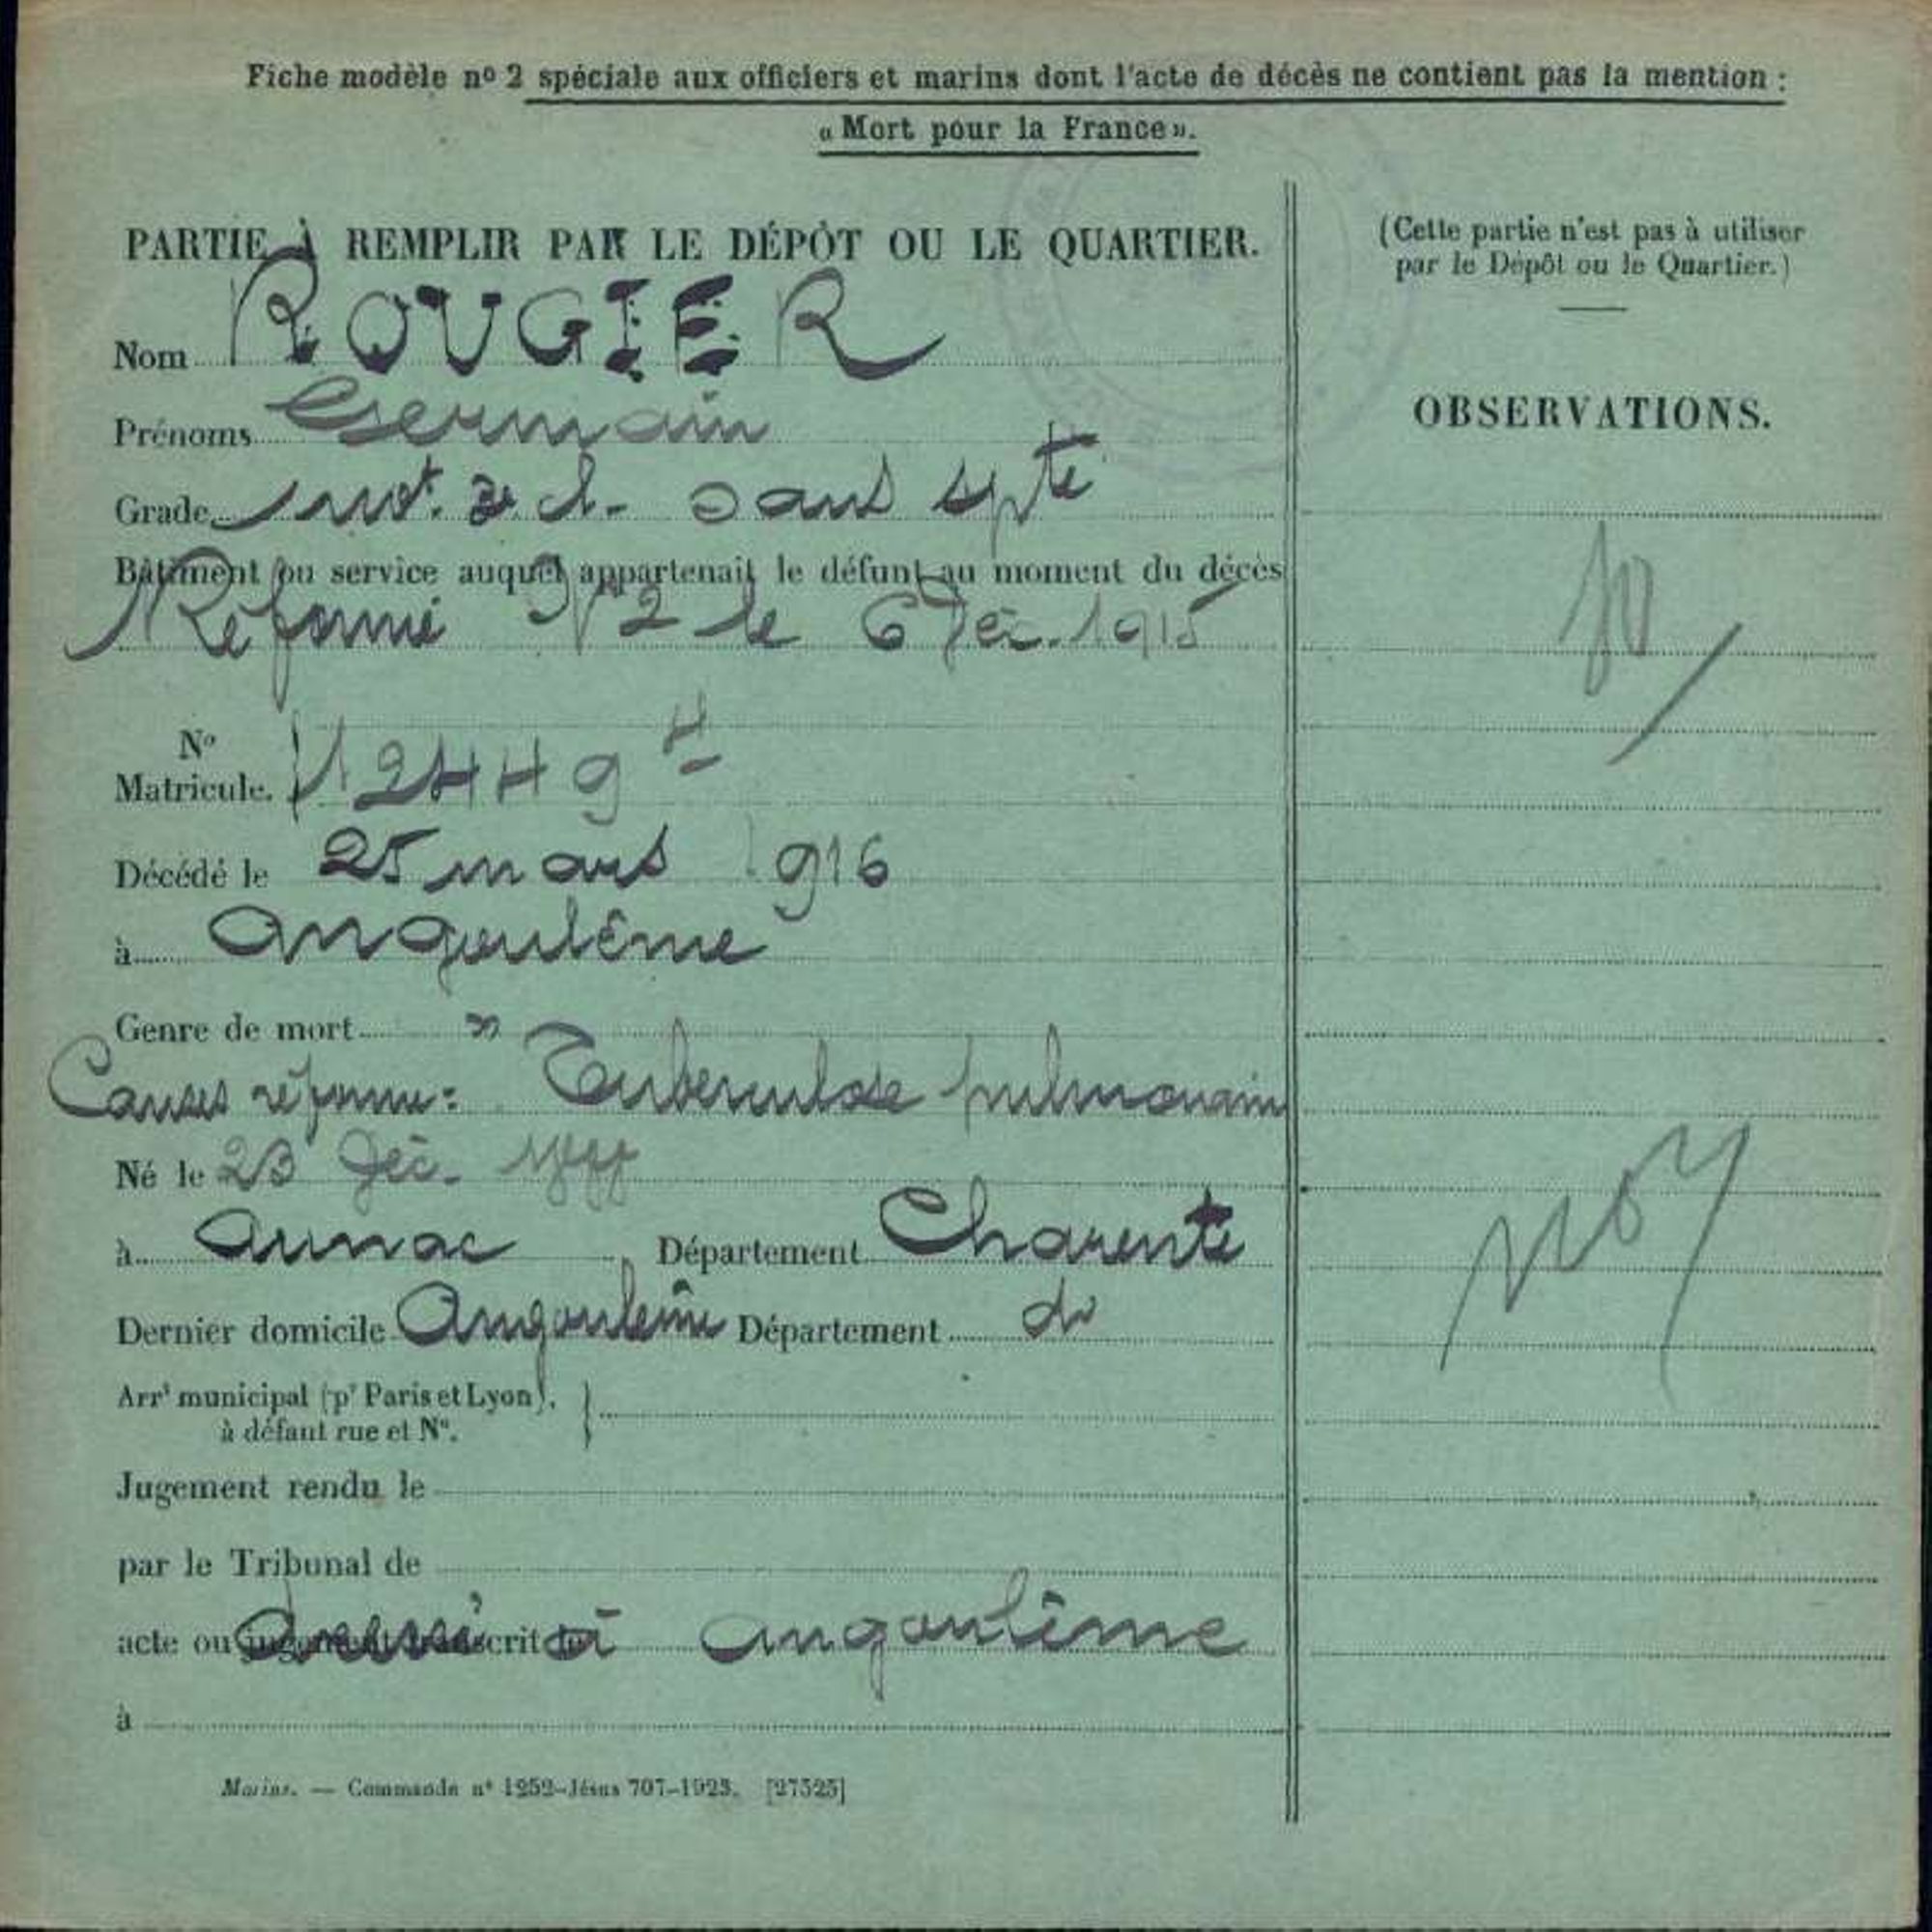 Fiche modèle nº 2 spéciale aux officiers et marins dont l'acte de décès ne contient pas la mention :
« Mort pour la France ».
PARTIE À REMPLIR PAR LE DÉPÔT OU LE QUARTIER.
(Cette partie n'est pas à utiliser
par le Dépôt ou le Quartier.)
Nom ROUGIER
Prénoms Germain
OBSERVATIONS.
Grade mot. 3e cl. sans spté
Bâtiment ou service auquel appartenait le défunt au moment du décès
Réformé N 2 le 6 Déc. 1915
Nº
Matricule. 12449
Décédé le 25 mars 1916
à Angoulême
Genre de mort
Causes réforme : Tuberculose pulmonaire
Né le 23 Déc.
à Aunac Département Charente
Dernier domicile Angoulême Département do
Arrt municipal (pr Paris et Lyon),
à défaut rue et Nº.
Jugement rendu le
par le Tribunal de
acte ou jugement transcrit le dressé à Angoulême
à
Marins. — Commande nº 1252-Jésus 707-1923. [27525]